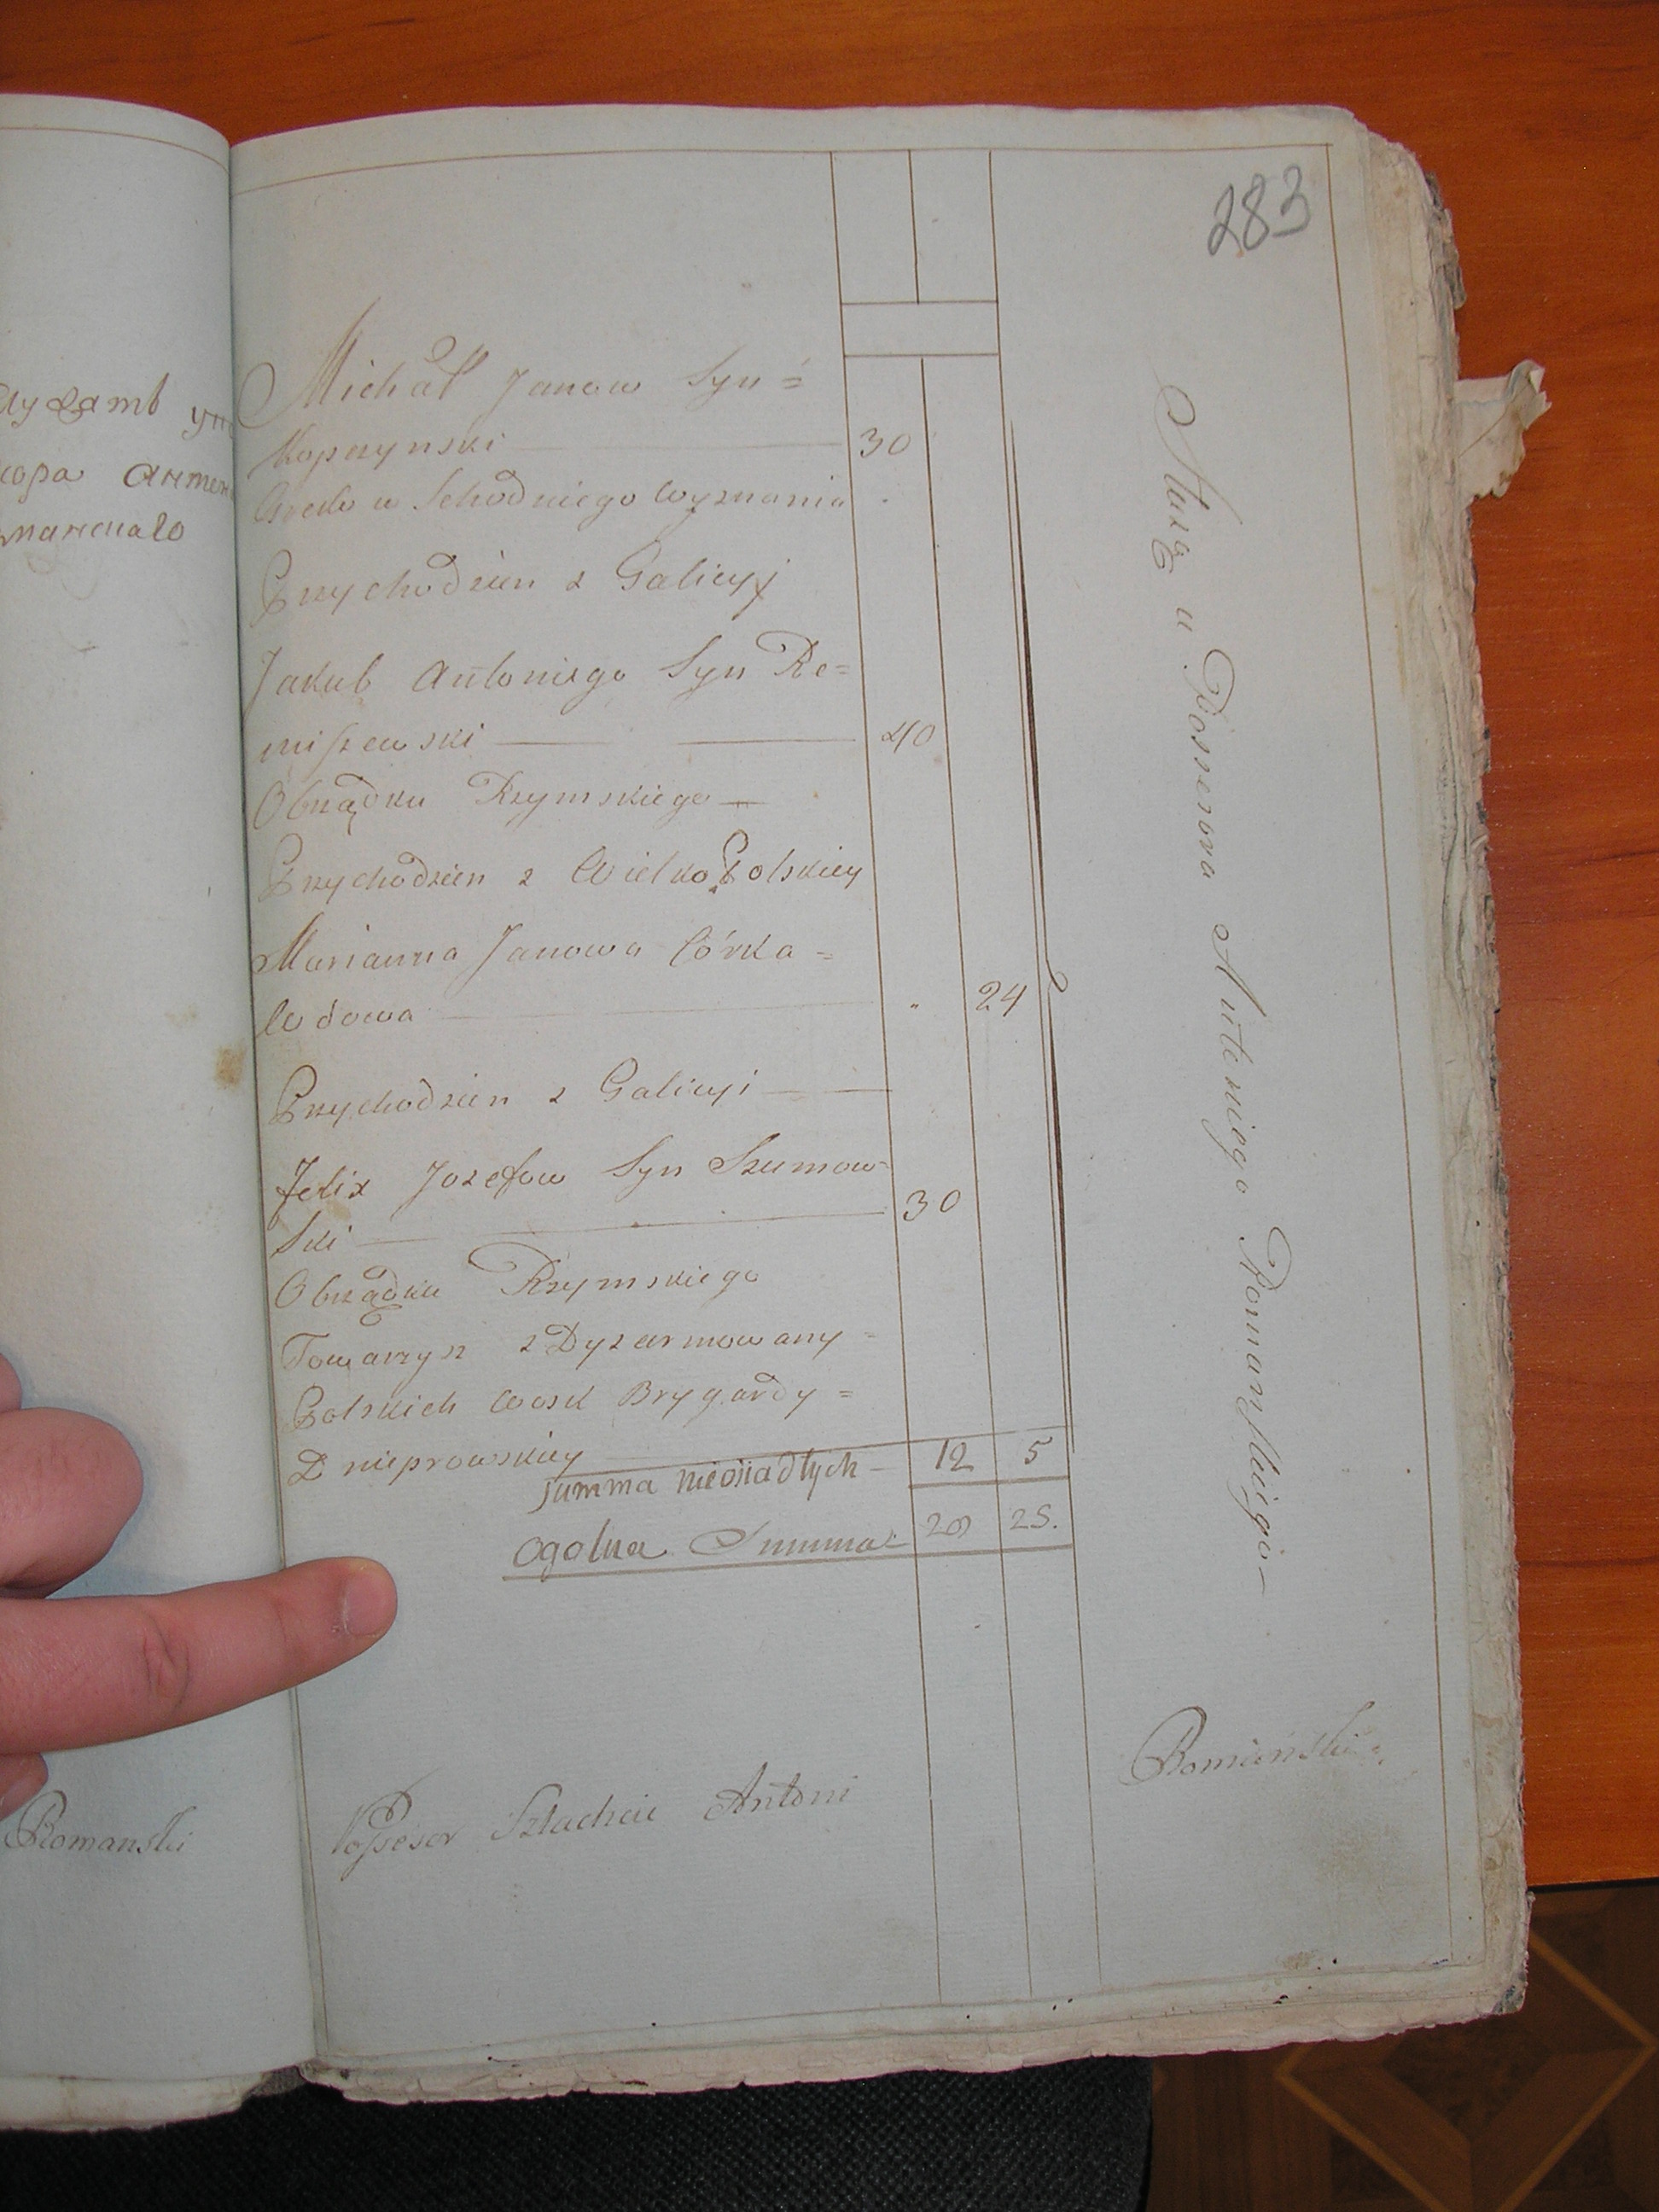 283
Michał Janow Syn =
Kopczynski 30
Greko wschodniego Wyznania
Przychodzien z Galicyj
Jakub Antoniego Syn Re=
miszewski 40
Obrządku Rzymskiego
Przychodzien z WielkoPolskiey
Marianna Janowa Córka =
Wdowa 24
Przychodzien z Galicyi
Felix Jozefow Syn Szumow=
Ski 30
Obrządku Rzymskiego
Towarzysz z Dyzarmowany =
Polskich Woysk Brygardy =
Dnieprowskiey
Summa nieosiadłych 12 5
Ogolna Summa 28 25.
Służą u Possesora Antoniego Romanskiego
Possesor Szlachcic Antoni Romanski
уп
Антон
Romanski